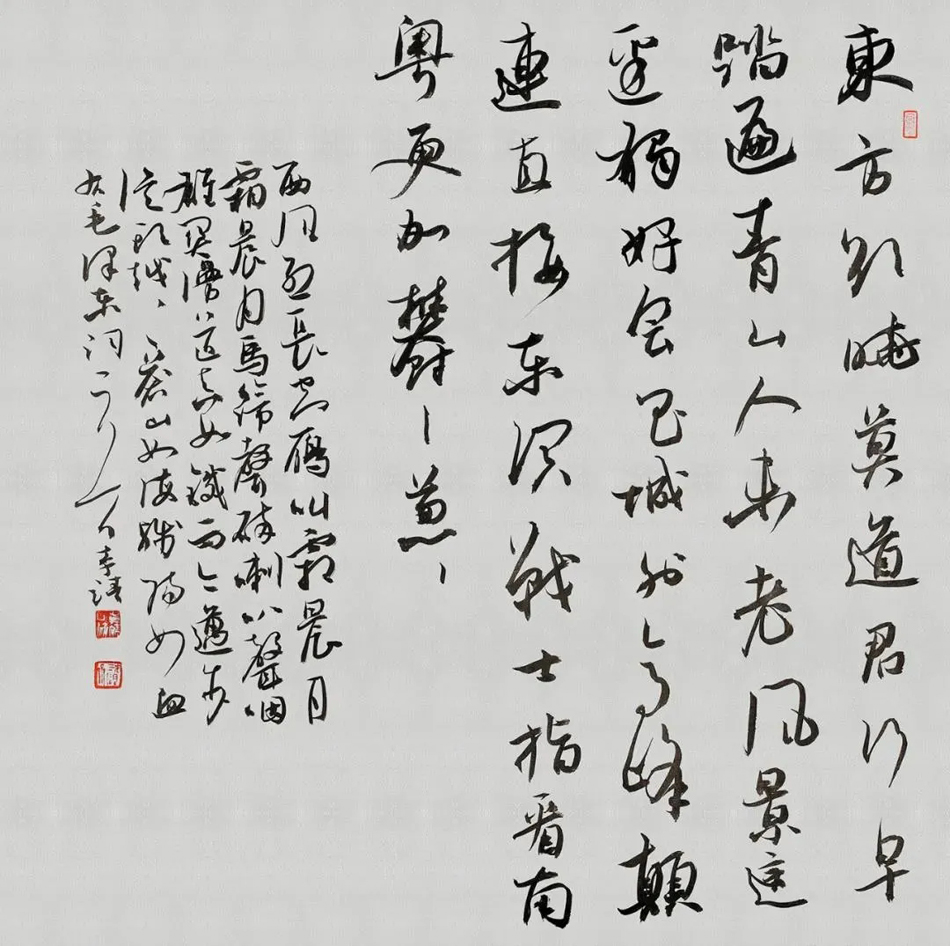 東方欲曉莫道君行早
踏遍青山人未老风景這
邊獨好会昌城外高峰顛
連直接东溟戰士指看南
粤更加鬱〻葱〻
西风烈長空雁叫霜晨月
霜晨月馬蹄聲碎喇叭聲咽
雄関漫道真如鐵而今邁步
從头越〻〻蒼山如海殘陽如血
右毛泽东词二首